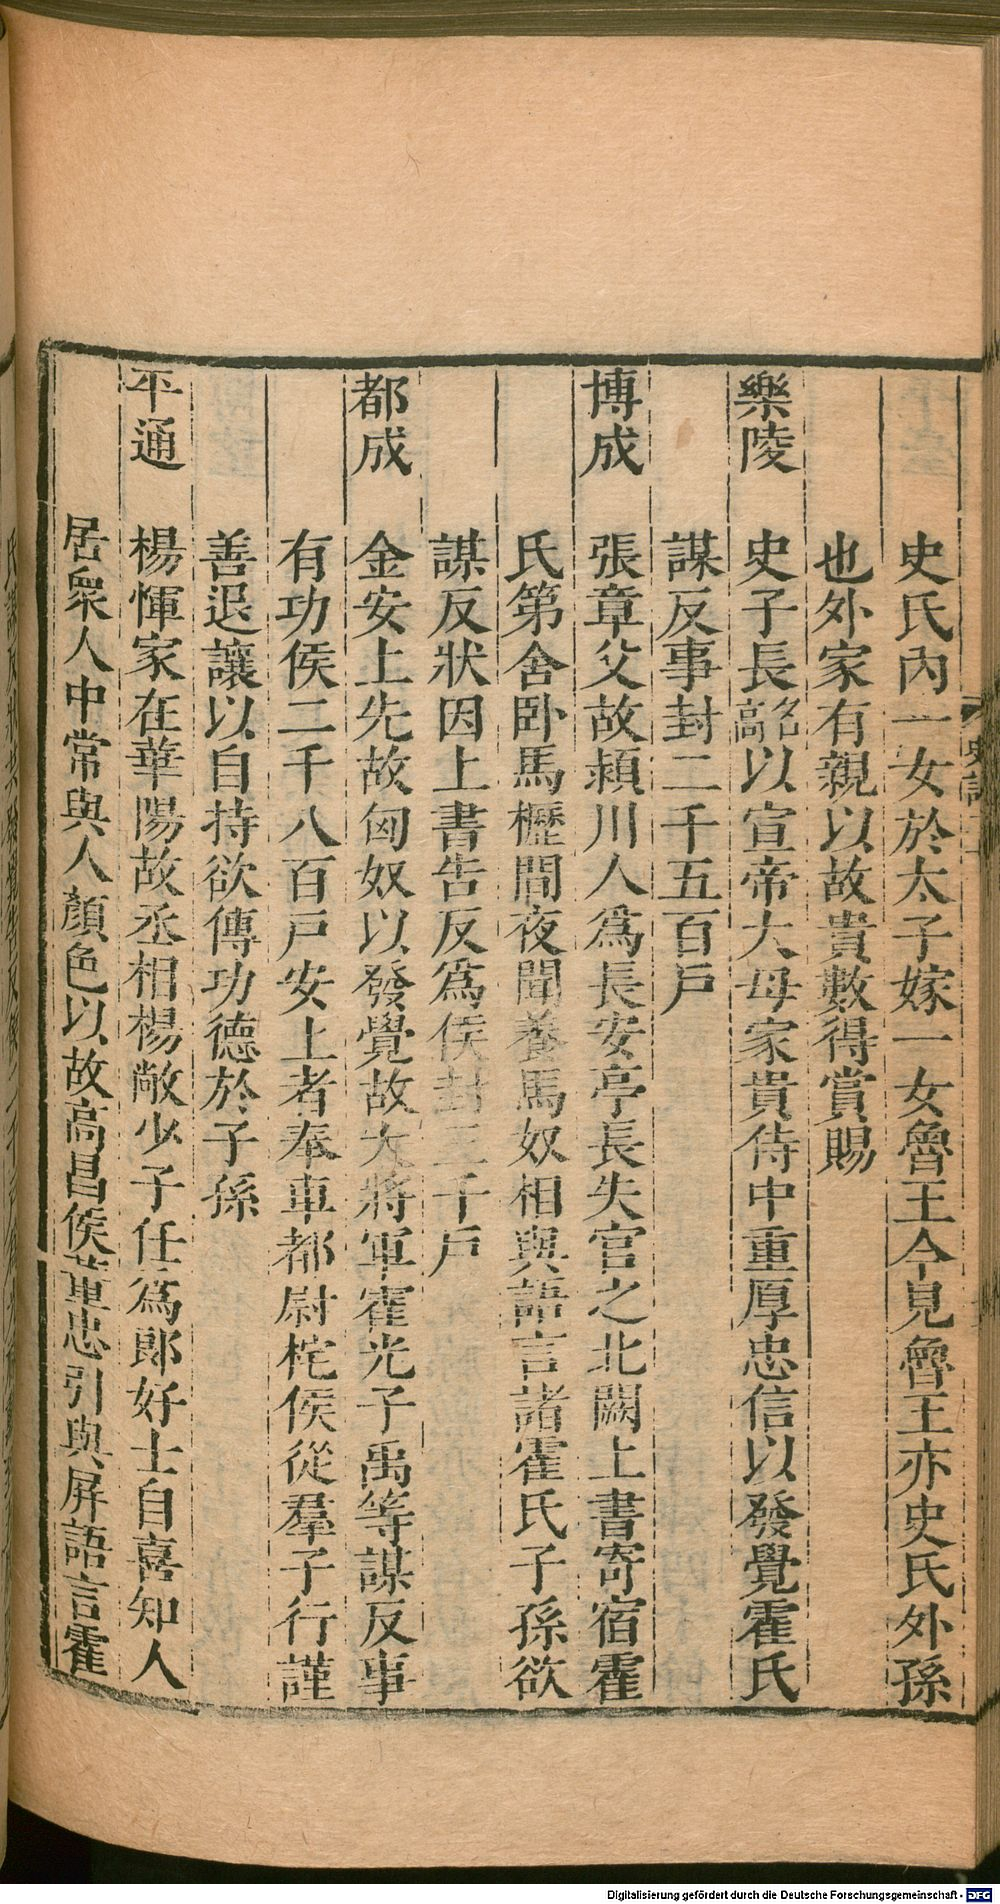 史氏內一女於太子嫁一女魯王今見魯王亦史氏外孫
也外家有親以故貴數得賞賜
樂陵 史子長名高以宣帝大母家貴侍中重厚忠信以發覺霍氏
謀反事封二千五百戶
博成 張章父故潁川人爲長安亭長失官之北闕上書寄宿霍
氏第舍卧馬櫪間夜聞養馬奴相與語言諸霍氏子孫欲
謀反狀因上書告反爲侯封三千戶
都成 金安上先故匈奴以發覺故大將軍霍光子禹等謀反事
有功侯二千八百戶安上者奉車都尉秺侯從羣子行謹
善退讓以自持欲傳功德於子孫
平通 楊惲家在華陽故丞相楊敞少子任爲郎好士自喜知人
居衆人中常與人顏色以故高昌侯董忠引與屏語言霍
Digitalisierung gefördert durch die Deutsche Forschungsgemeinschaft - DFG